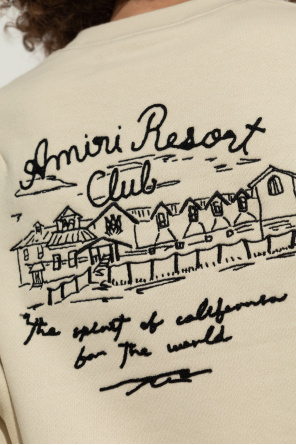 Amiri Resort
Club
"The spirit of california
for the world